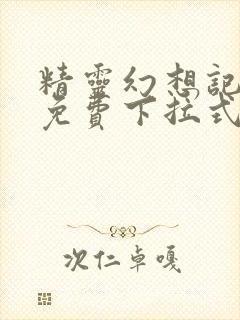 精靈幻想記
免費下拉式
次仁卓嘎